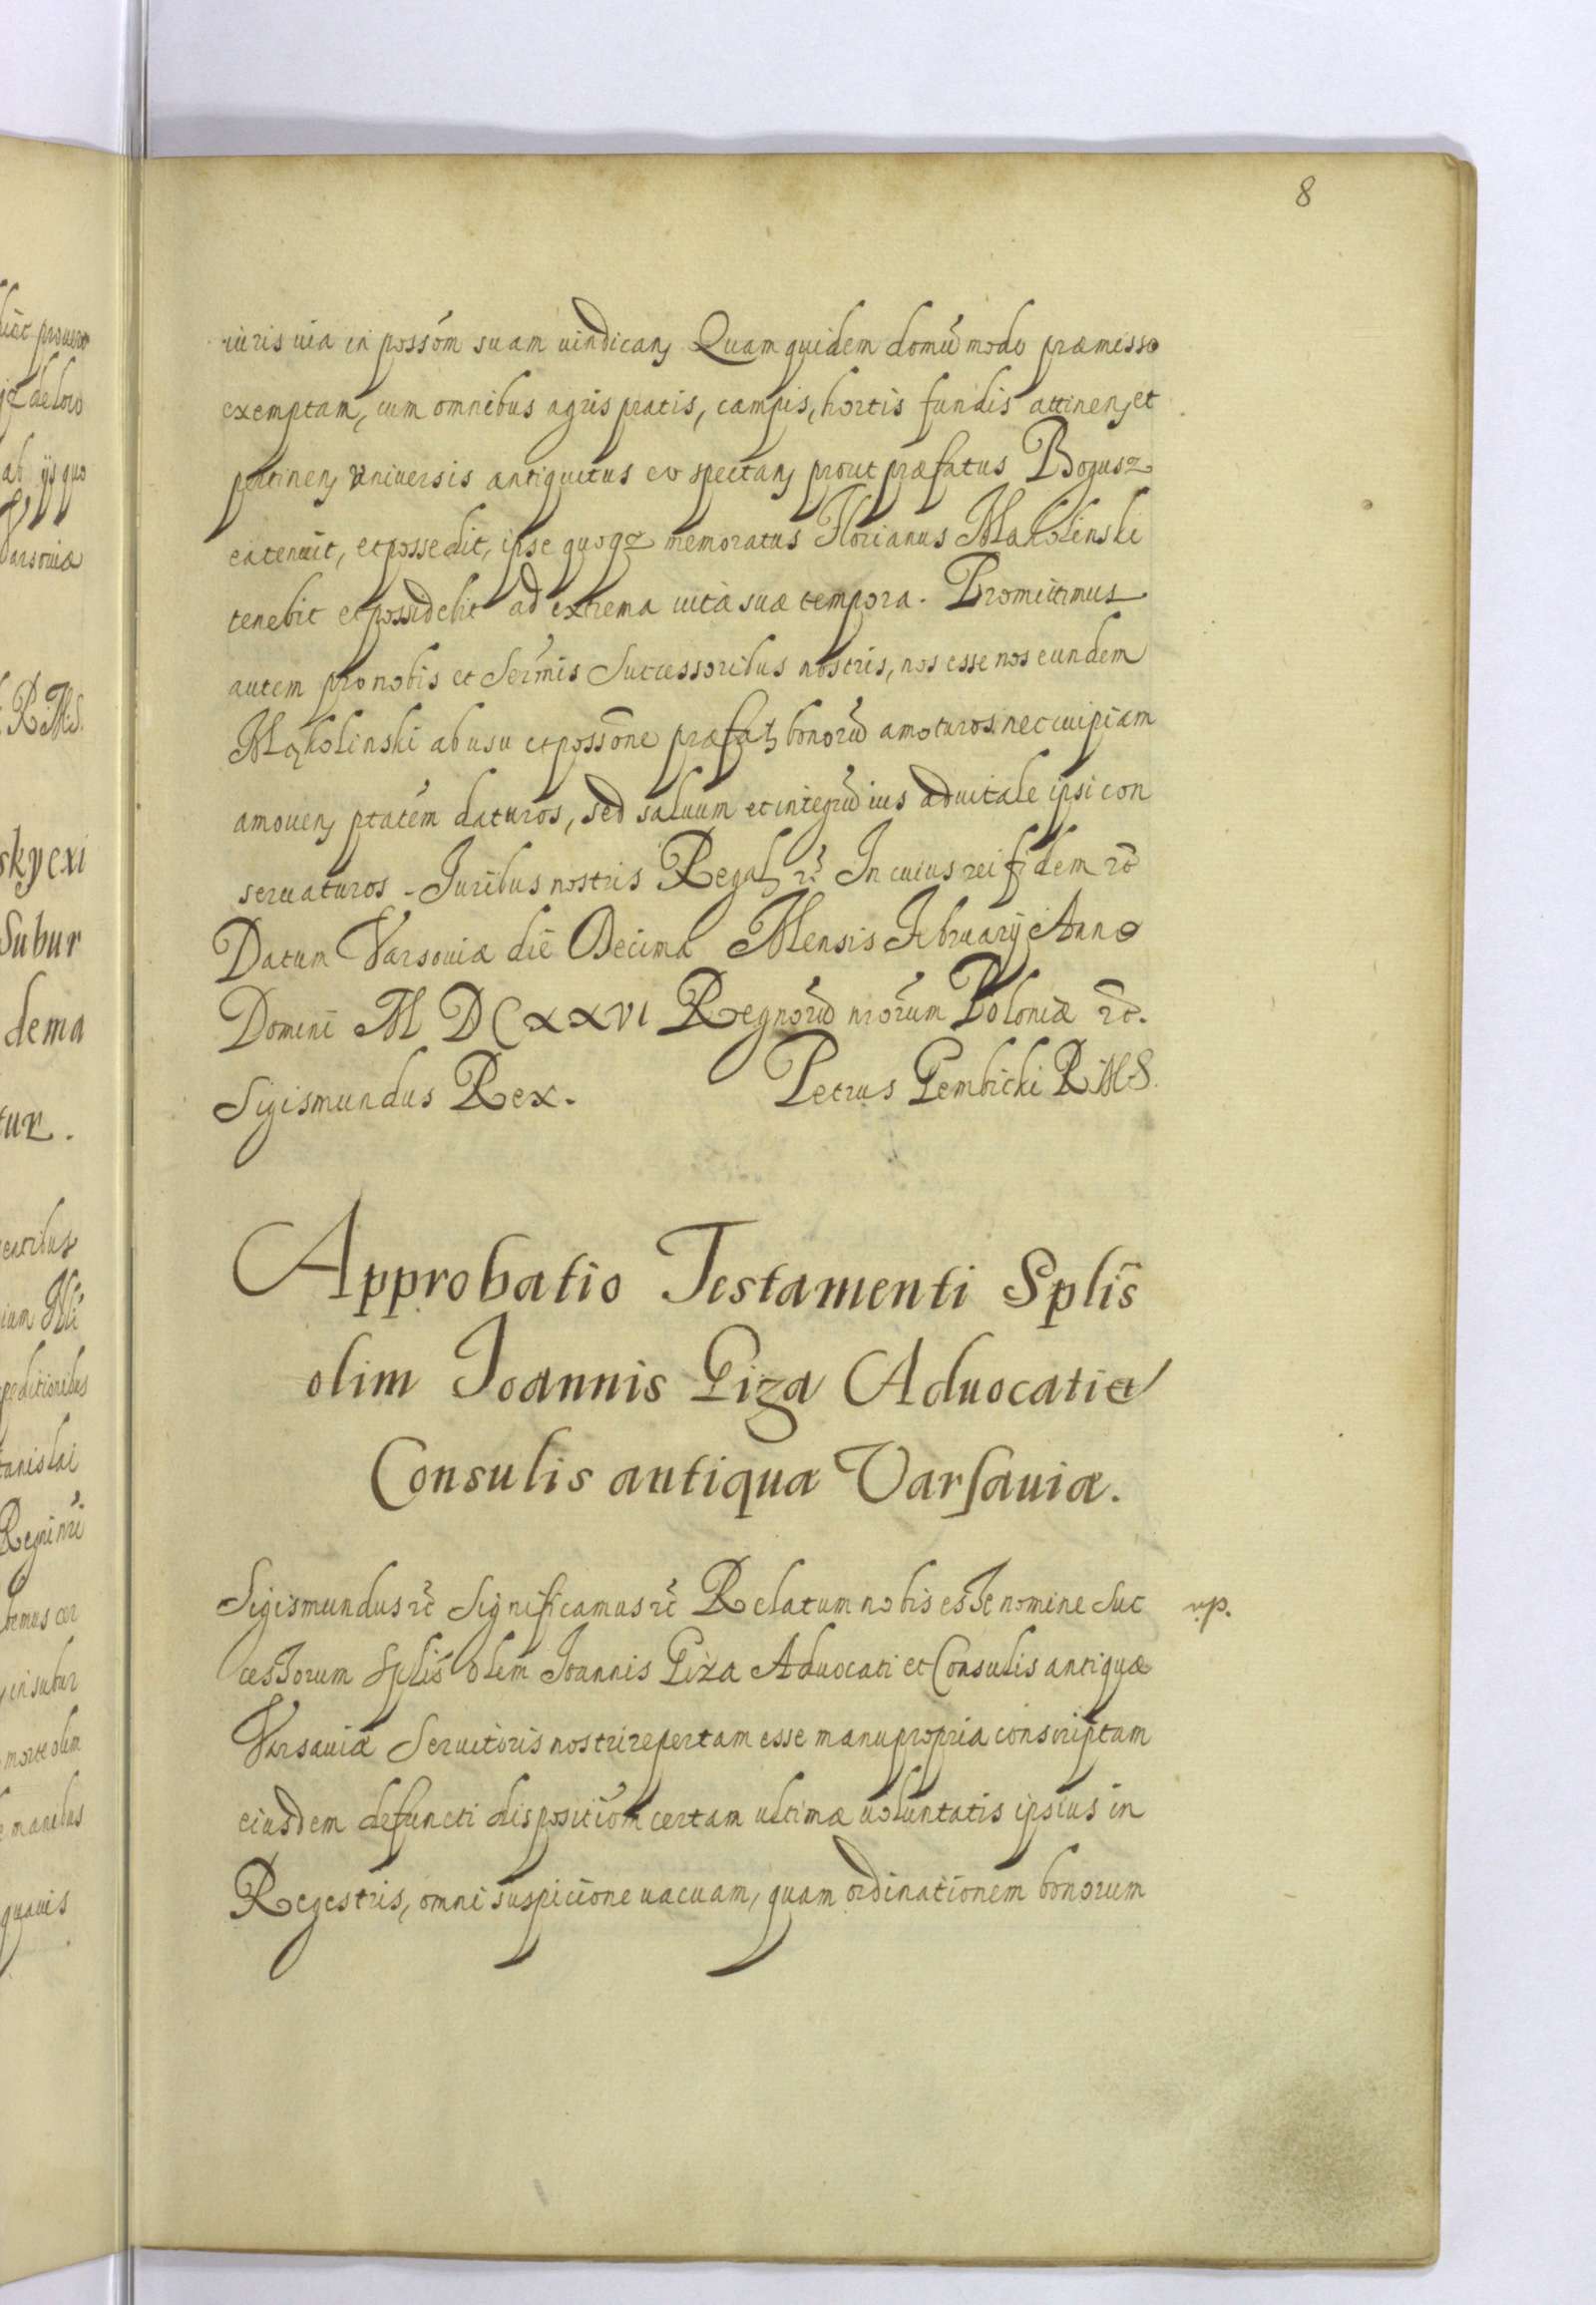 8
iuris uia in possōm suam uindicanʒ Quam quidem domū modo præmisso
exemptam, cum omnibus agris pratis, campis, hortis fundis attinenʒ et
ꝑtinenʒ vniuersis antiquitus eo spectanʒ prout præfatus Bogusz
ea tenuit, et possedit, ipse quoqʒ memoratus Florianus Mąkolinski
tenebit et possidebit ad extrema uitæ suæ tempora. Promittimus
autem pro nobis et Serm̄is Successoribus nostris, nos esse nos eundem
Mąkolinski ab usu et possōne præfatʒ bonorū amoturos nec cuipiam
amouenʒ ptatēm daturos, sed saluum et integrū ius aduitale ipsi con
seruaturos Iuribus nostris Regalʒ &c̄ In cuius rei fidem &c̄
Datum Varsouiæ die Decima Mensis February Anno
Domini M D C XXVI Regnorū nrōrum Poloniæ &c̄.
Sigismundus Rex. Petrus Gembicki R. M. S.
Approbatio Testamenti Splīs
olim Ioannis Giza Aduocati et
Consulis antiquæ Varsauiæ.
Sigismundus &c̄ Significamus &c̄ Relatum nobis esse nomine Suc
cessorum Splīs olim Ioannis Giza Aduocati et Consulis antiquæ
Varsauiæ Seruitoris nostri repertam esse manu propria conscriptam
eiusdem defuncti dispositiōm certam ultimæ uoluntatis ipsius in
Regestris, omni suspicione uacuam, quam ordinationem bonorum